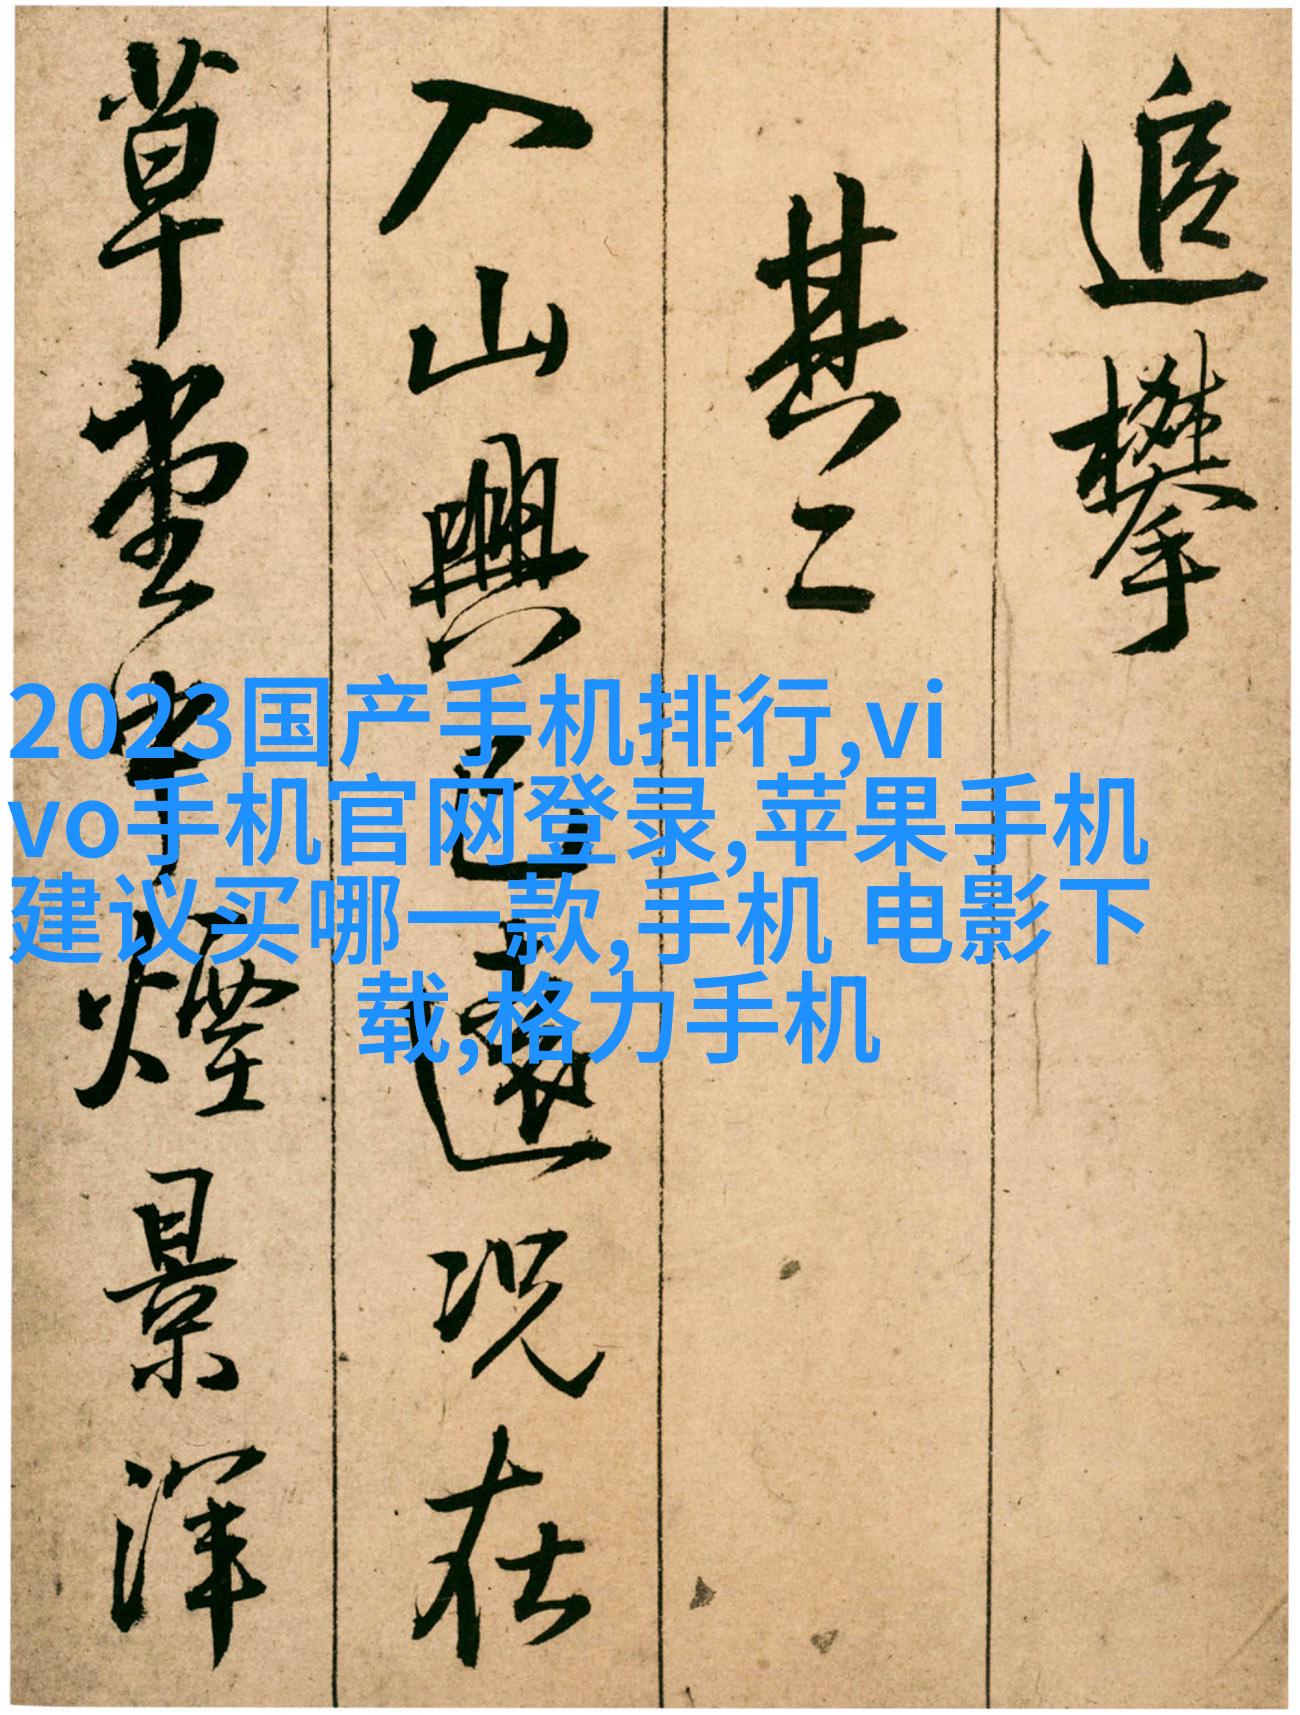 追攀
其二
入山興已遠况在
草堂中煙景渾
2023国产手机排行,vi
vo手机官网登录,苹果手机
建议买哪一款,手机 电影下
载,格力手机